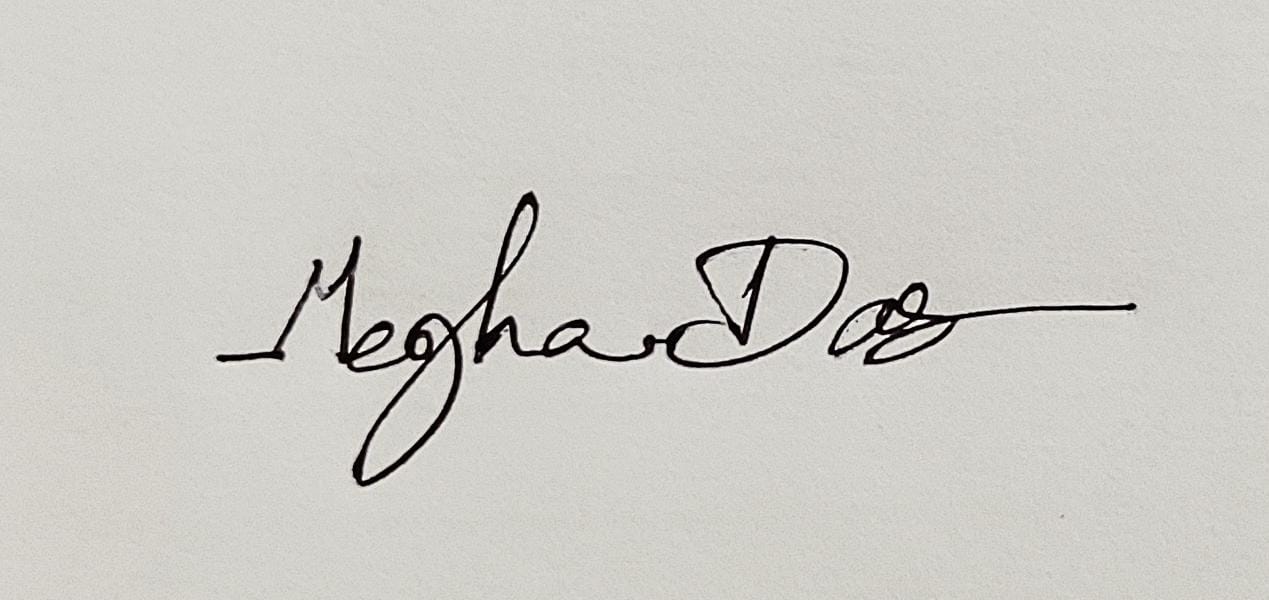 Megha Das